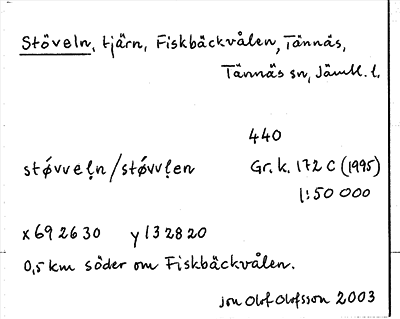 Stöveln, tjärn, Fiskbäckvålen, Tännäs,
Tännäs sn, Jämtl. l.
440
stǿvveḷn/stǿvvḷen Gr. k. 172 C (1995)
1:50 000
x692630 y132820
0,5 km söder om Fiskbäckvålen.
Jon Olof Olofsson 2003